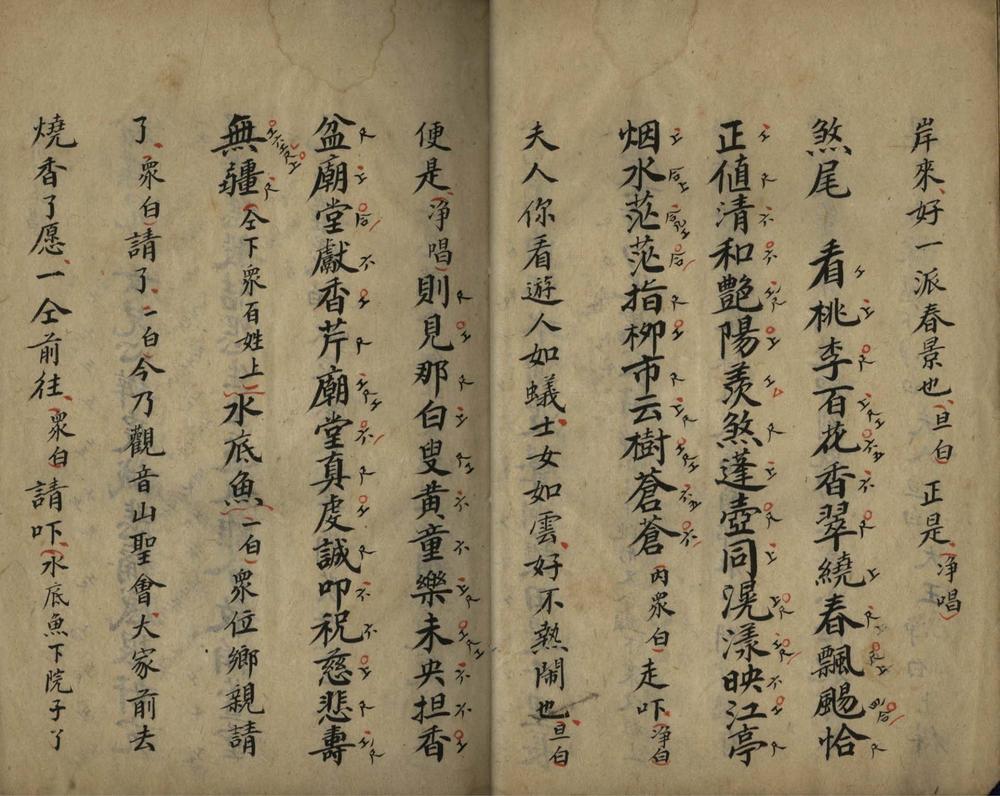 岸來好一派春景也旦白正是淨唱
煞尾 看桃李百花香翠繞春飄颺恰
正値清和艷陽羨煞蓬壺同滉漾映江亭
烟水茫茫指柳市云樹蒼蒼內衆白走吓淨白
夫人你看遊人如蟻士女如雲好不熱鬧也旦白
便是淨唱則見那白叟黄童樂未央担香
盆廟堂獻香芹廟堂真虔誠叩祝慈悲壽
無疆仝下衆百姓上水底魚一白衆位鄉親請
了衆白請了一白今乃觀音山聖會大家前去
燒香了愿一仝前往衆白請吓水底魚下院子丫